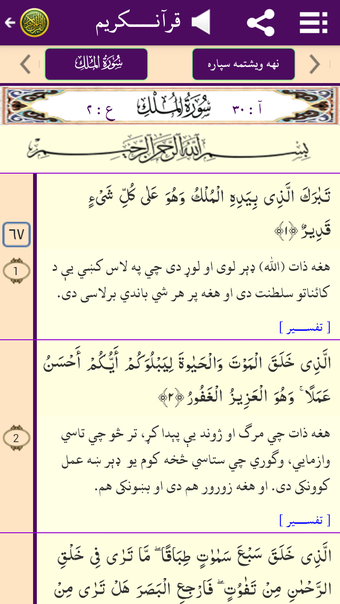 قرآنــکریم
نهه ويشتمه سپاره
سُوْرَةُ المُلْك
آ : ٣٠
سُوْرَةُ المُلْكِ
ع : ٢
بِسْمِ اللهِ الرَّحْمٰنِ الرَّحِيْمِ
تَبٰرَكَ الَّذِى بِيَدِهِ الْمُلْكُ وَهُوَ عَلٰى كُلِّ شَىْءٍ
قَدِيْرٌ ﴿١﴾
٦٧
1
هغه ذات (الله) ډېر لوی او لوړ دی چي په لاس کښي يې د
کائناتو سلطنت دی او هغه پر هر شي باندي برلاسی دی.
[ تفســير ]
الَّذِى خَلَقَ الْمَوْتَ وَالْحَيٰوةَ لِيَبْلُوَكُمْ اَيُّكُمْ اَحْسَنُ
عَمَلًا ۚ وَهُوَ الْعَزِيْزُ الْغَفُوْرُ ﴿٢﴾
2
هغه ذات چي مرگ او ژوند يې پيدا کړ، تر څو چي تاسي
وازمايي، وگوري چي ستاسي څخه کوم يو ډېر ښه عمل
کوونکی دی. او هغه زورور هم دی او بښونکی هم.
[ تفســير ]
الَّذِى خَلَقَ سَبْعَ سَمٰوٰتٍ طِبَاقًا ۖ مَّا تَرٰى فِى خَلْقِ
الرَّحْمٰنِ مِنْ تَفٰوُتٍ ۖ فَارْجِعِ الْبَصَرَ هَلْ تَرٰى مِنْ